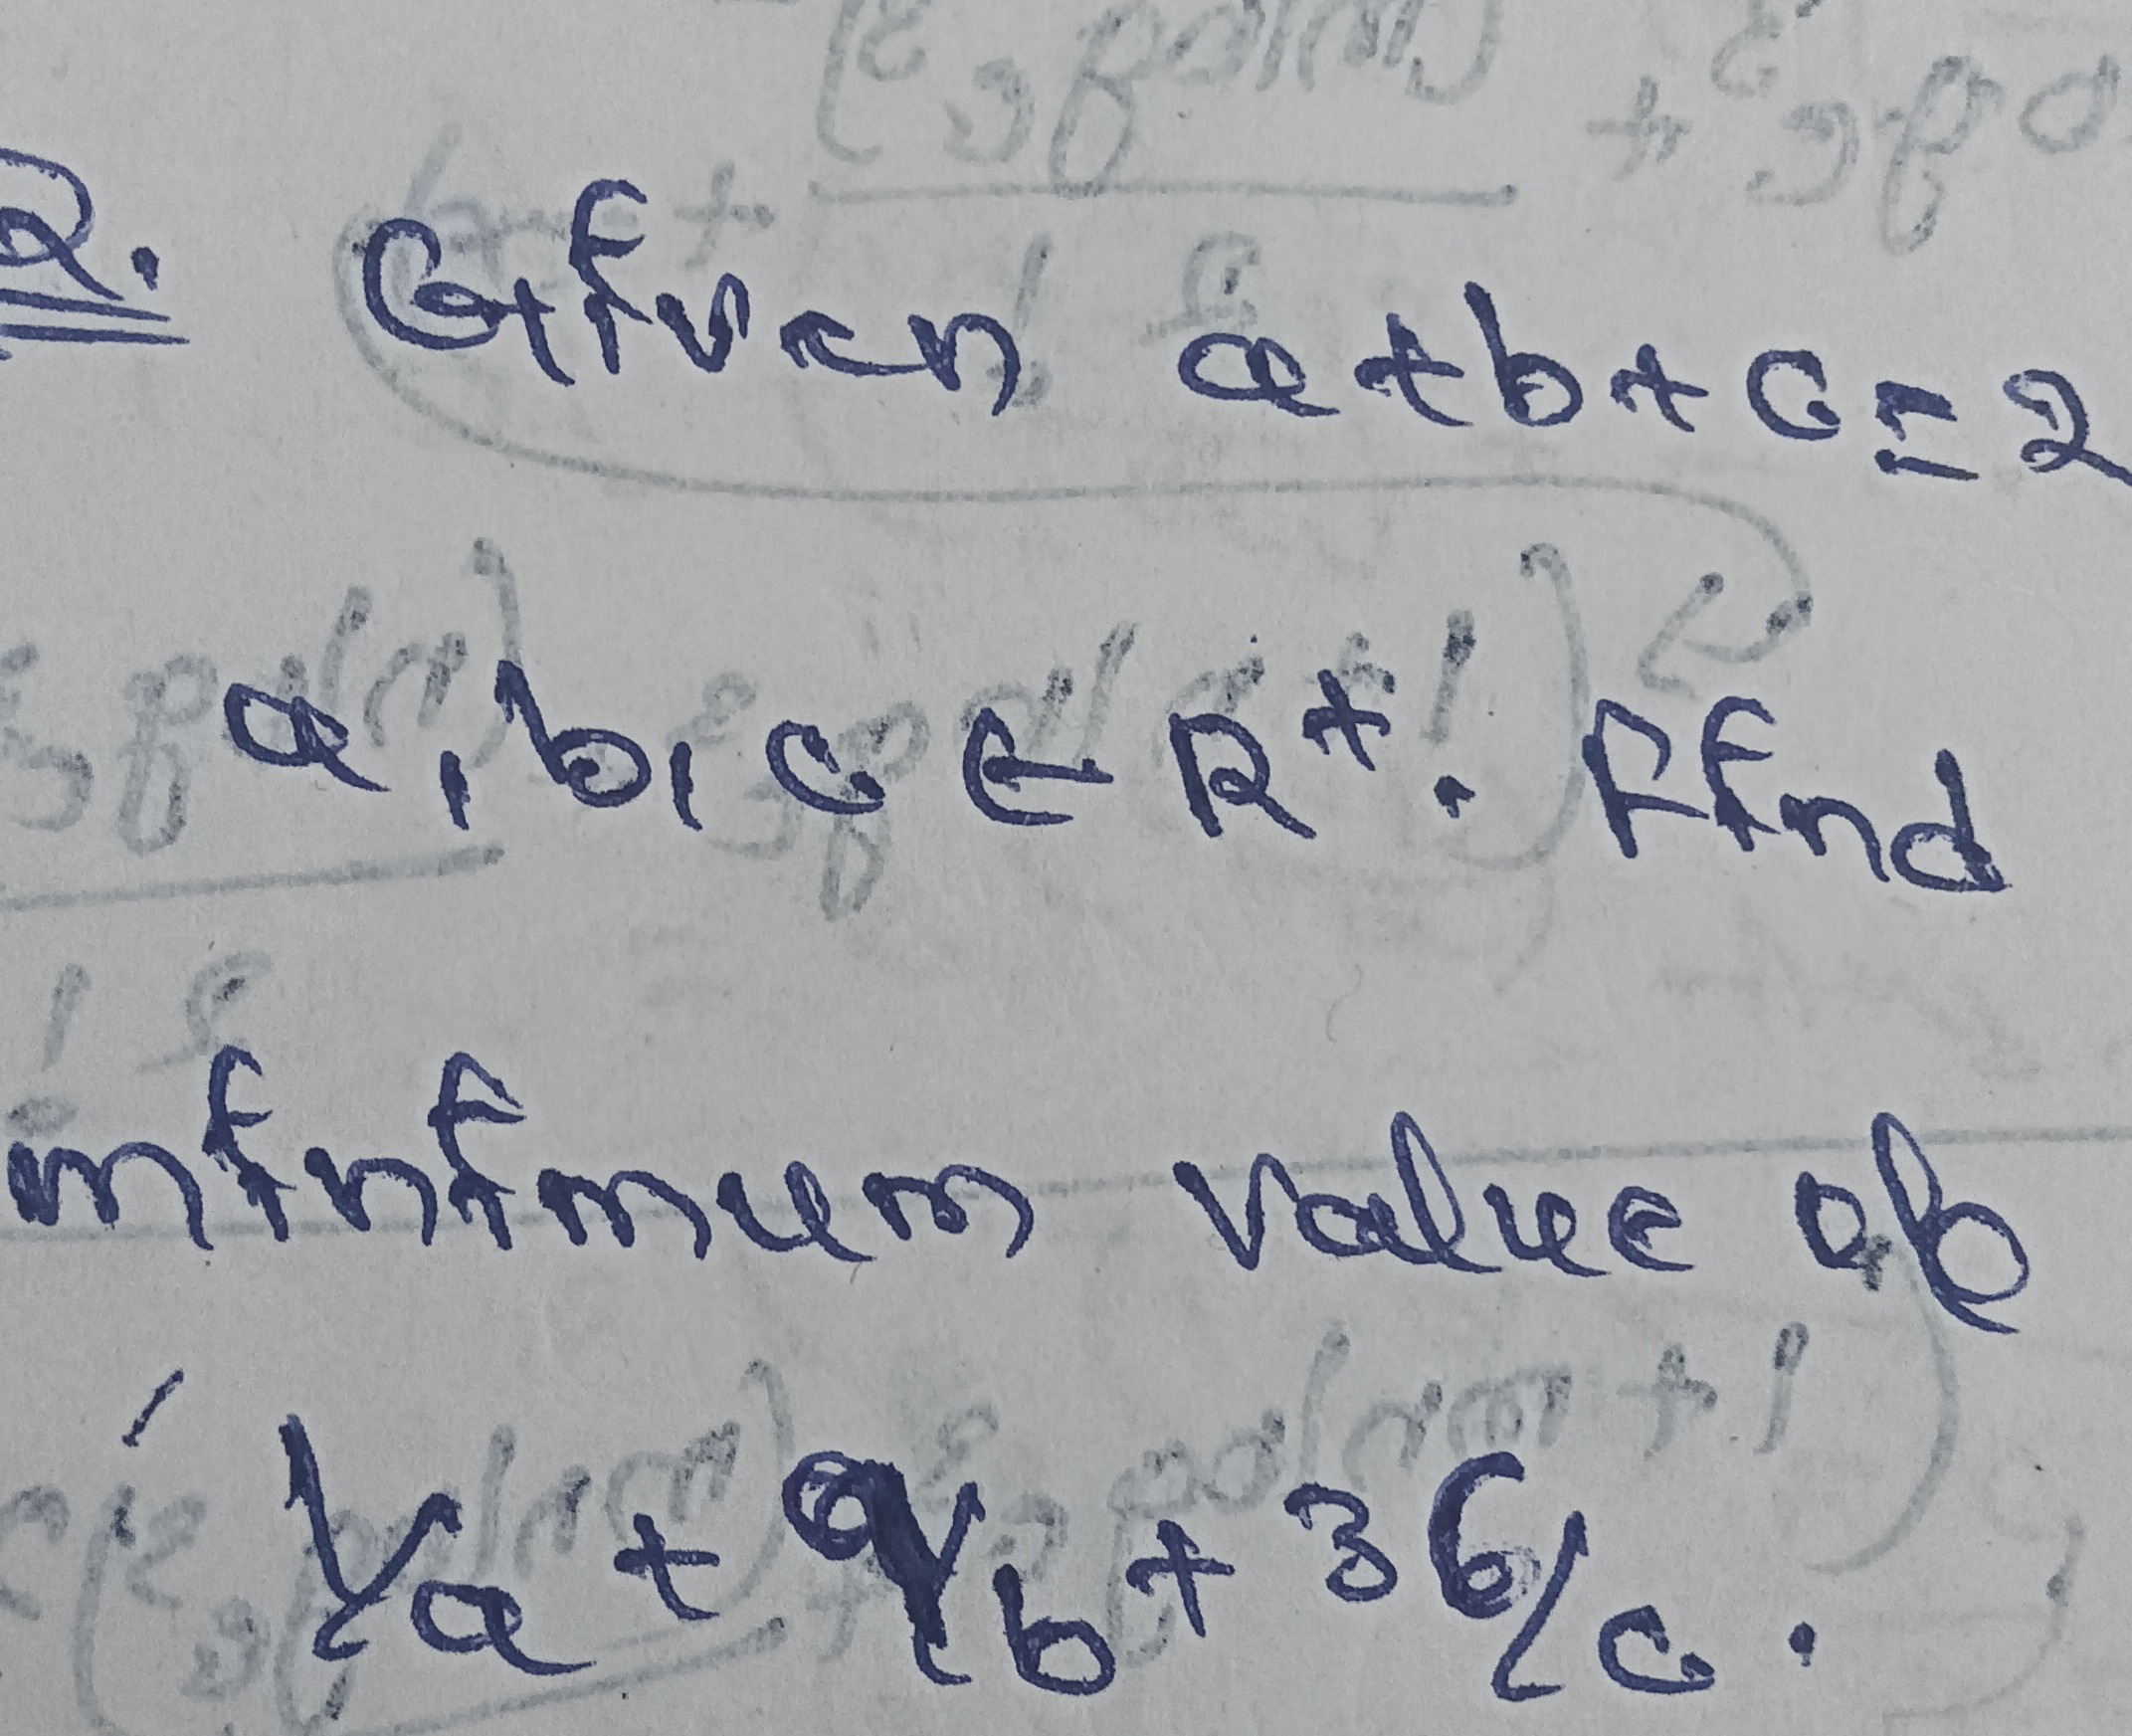 Q. Given a+b+c=2
a,b,c ∈ R⁺. Find
minimum value of
1/a + 9/b + 36/c.